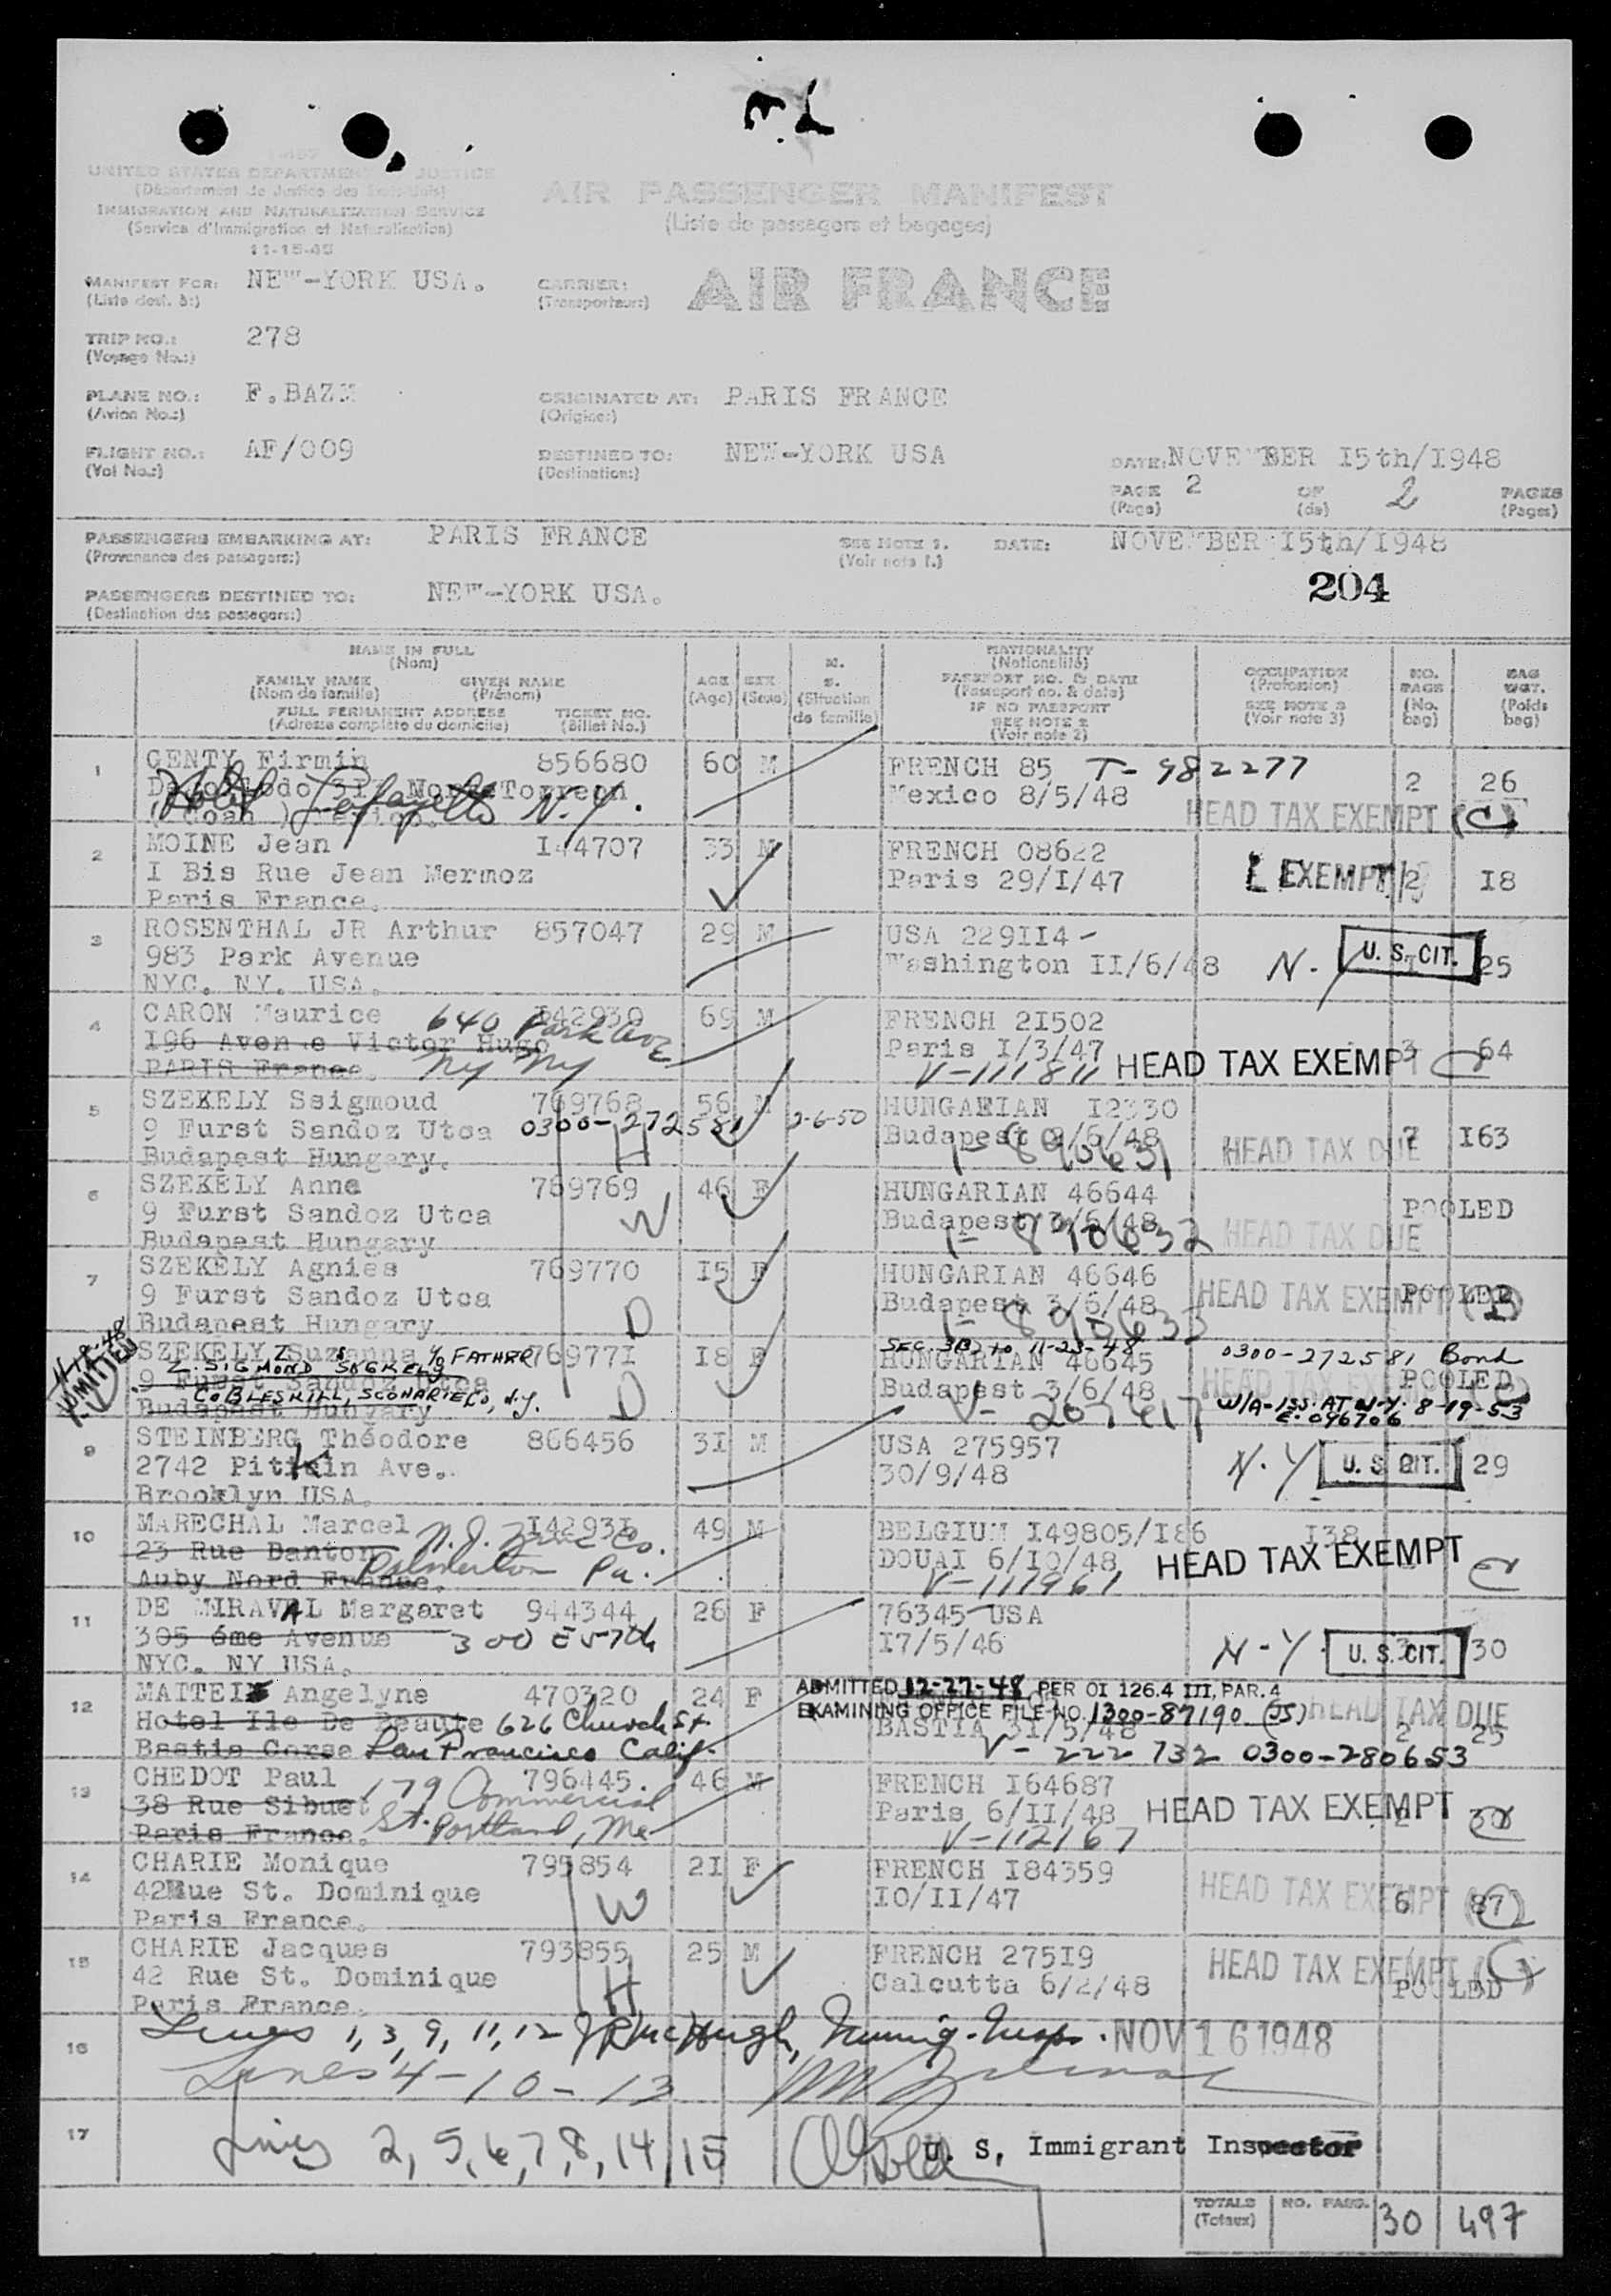 UNITED STATES DEPARTMENT JUSTICE
(Département de Justice des Etats-Unis)
IMMIGRATION AND NATURALIZATION SERVICE
(Service d'Immigration et Naturalisation)
11-15-45
AIR PASSENGER MANIFEST
(Liste de passagers et bagages)
MANIFEST FOR: NEW-YORK USA.
(Liste dest. à:)
CARRIER: AIR FRANCE
(Transporteur:)
TRIP NO.: 278
(Voyage No.:)
PLANE NO.: F.BAZ
(Avion No.:)
ORIGINATED AT: PARIS FRANCE
(Origine:)
FLIGHT NO.: AF/009
(Vol No.:)
DESTINED TO: NEW-YORK USA
(Destination:)
DATE: NOVEMBER I5th/I948
PAGE 2 OF 2 PAGES
(Page) (de) (Pages)
PASSENGERS EMBARKING AT: PARIS FRANCE
(Provenance des passagers:)
SEE NOTE 1. DATE: NOVEMBER I5th/I948
(Voir note 1.)
204
PASSENGERS DESTINED TO: NEW-YORK USA.
(Destination des passagers:)
NAME IN FULL
(Nom)
FAMILY NAME GIVEN NAME
(Nom de famille) (Prénom)
FULL PERMANENT ADDRESS TICKET NO.
(Adresse complète du domicile) (Billet No.)
AGE
(Age)
SEX
(Sexe)
M.
S.
(Situation
de famille)
NATIONALITY
(Nationalité)
PASSPORT NO. & DATE
(Passeport no. & date)
IF NO PASSPORT
SEE NOTE 2
(Voir note 2)
OCCUPATION
(Profession)
SEE NOTE 3
(Voir note 3)
NO.
BAGS
(No.
bag)
BAG
WGT.
(Poids
bag)
1 GENTY Firmin 856680 60 M FRENCH 85 T-982277 2 26
Hotel Lafayette N.Y. Torreon Mexico 8/5/48 HEAD TAX EXEMPT (C)
2 MOINE Jean I44707 33 M FRENCH 08622
I Bis Rue Jean Mermoz Paris 29/I/47 EXEMPT 2 I8
Paris France.
3 ROSENTHAL JR Arthur 857047 29 M USA 229II4-
983 Park Avenue Washington II/6/48 N.Y U.S. CIT. 25
NYC. NY. USA.
4 CARON Maurice I42930 69 M FRENCH 2I502
640 Park Ave
I96 Avenue Victor Hugo Paris I/3/47 3 64
PARIS France. NY NY V-111811 HEAD TAX EXEMPT
5 SZEKELY Ssigmoud 769768 56 M HUNGARIAN I2330
9 Furst Sandoz Utca 0300-272581 2-6-50 Budapest 3/6/48 7 I63
Budapest Hungary. H I-890631 HEAD TAX DUE
6 SZEKELY Anna 769769 46 F HUNGARIAN 46644 POOLED
9 Furst Sandoz Utca W Budapest 3/6/48
Budapest Hungary I-890632 HEAD TAX DUE
7 SZEKELY Agnies 769770 I5 F HUNGARIAN 46646
9 Furst Sandoz Utca Budapest 3/6/48 HEAD TAX EXEMPT POOLED
Budapest Hungary D I-890633
ADMITTED
SZEKELY Zsuzanna c/o FATHER 76977I I8 F HUNGARIAN 46645
SEC. 3(2) to 11-23-48 0300-272581 Bond
Z. SIGMOND SZEKELY
9 Furst Sandoz Utca D Budapest 3/6/48 HEAD TAX POOLED
COBLESKILL, SCOHARIE Co, N.Y. V-207617 W/A-ISS. AT N.Y. 8-19-53
Budapest Hungary E-096706
9 STEINBERG Théodore 866456 3I M USA 275957
2742 Pitkin Ave. 30/9/48 N.Y U.S. CIT. 29
Brooklyn USA.
10 MARECHAL Marcel I4293I 49 M BELGIUM I49805/I86 I38
23 Rue Danton N.J. Zinc Co. DOUAI 6/I0/48 HEAD TAX EXEMPT
Auby Nord France. Palmerton Pa. V-111961
11 DE MIRAVAL Margaret 944344 26 F 76345 USA
305 6me Avenue 300 E 57th I7/5/46 N-Y. U.S. CIT. 30
NYC. NY USA.
ADMITTED 12-27-48 PER OI 126.4 III, PAR. 4
12 MATTEI Angelyne 470320 24 F EXAMINING OFFICE FILE NO. 1300-87190 (JS) HEAD TAX DUE
Hotel Ile De Beaute 626 Church St. BASTIA 3I/5/48 2 25
Bastia Corse San Francisco Calif. V-222 732 0300-280653
13 CHEDOT Paul 796445. 46 M FRENCH I64687
38 Rue Sibuet 179 Commercial Paris 6/II/48 HEAD TAX EXEMPT
Paris France. St. Portland, Me V-112167
14 CHARIE Monique 795854 2I F FRENCH I84359
42 Rue St. Dominique I0/II/47 HEAD TAX EXEMPT 6 87
Paris France. W
15 CHARIE Jacques 793855 25 M FRENCH 275I9
42 Rue St. Dominique Calcutta 6/2/48 HEAD TAX EXEMPT (C) POOLED
Paris France. H
16 Lines 1, 3, 9, 11, 12 McHugh, Immig. Insp. NOV 16 1948
Lines 4-10-13
17 Lines 2, 5, 6, 7, 8, 14, 15 U. S. Immigrant Inspector
TOTALS NO. PASS. 30 497
(Totaux)